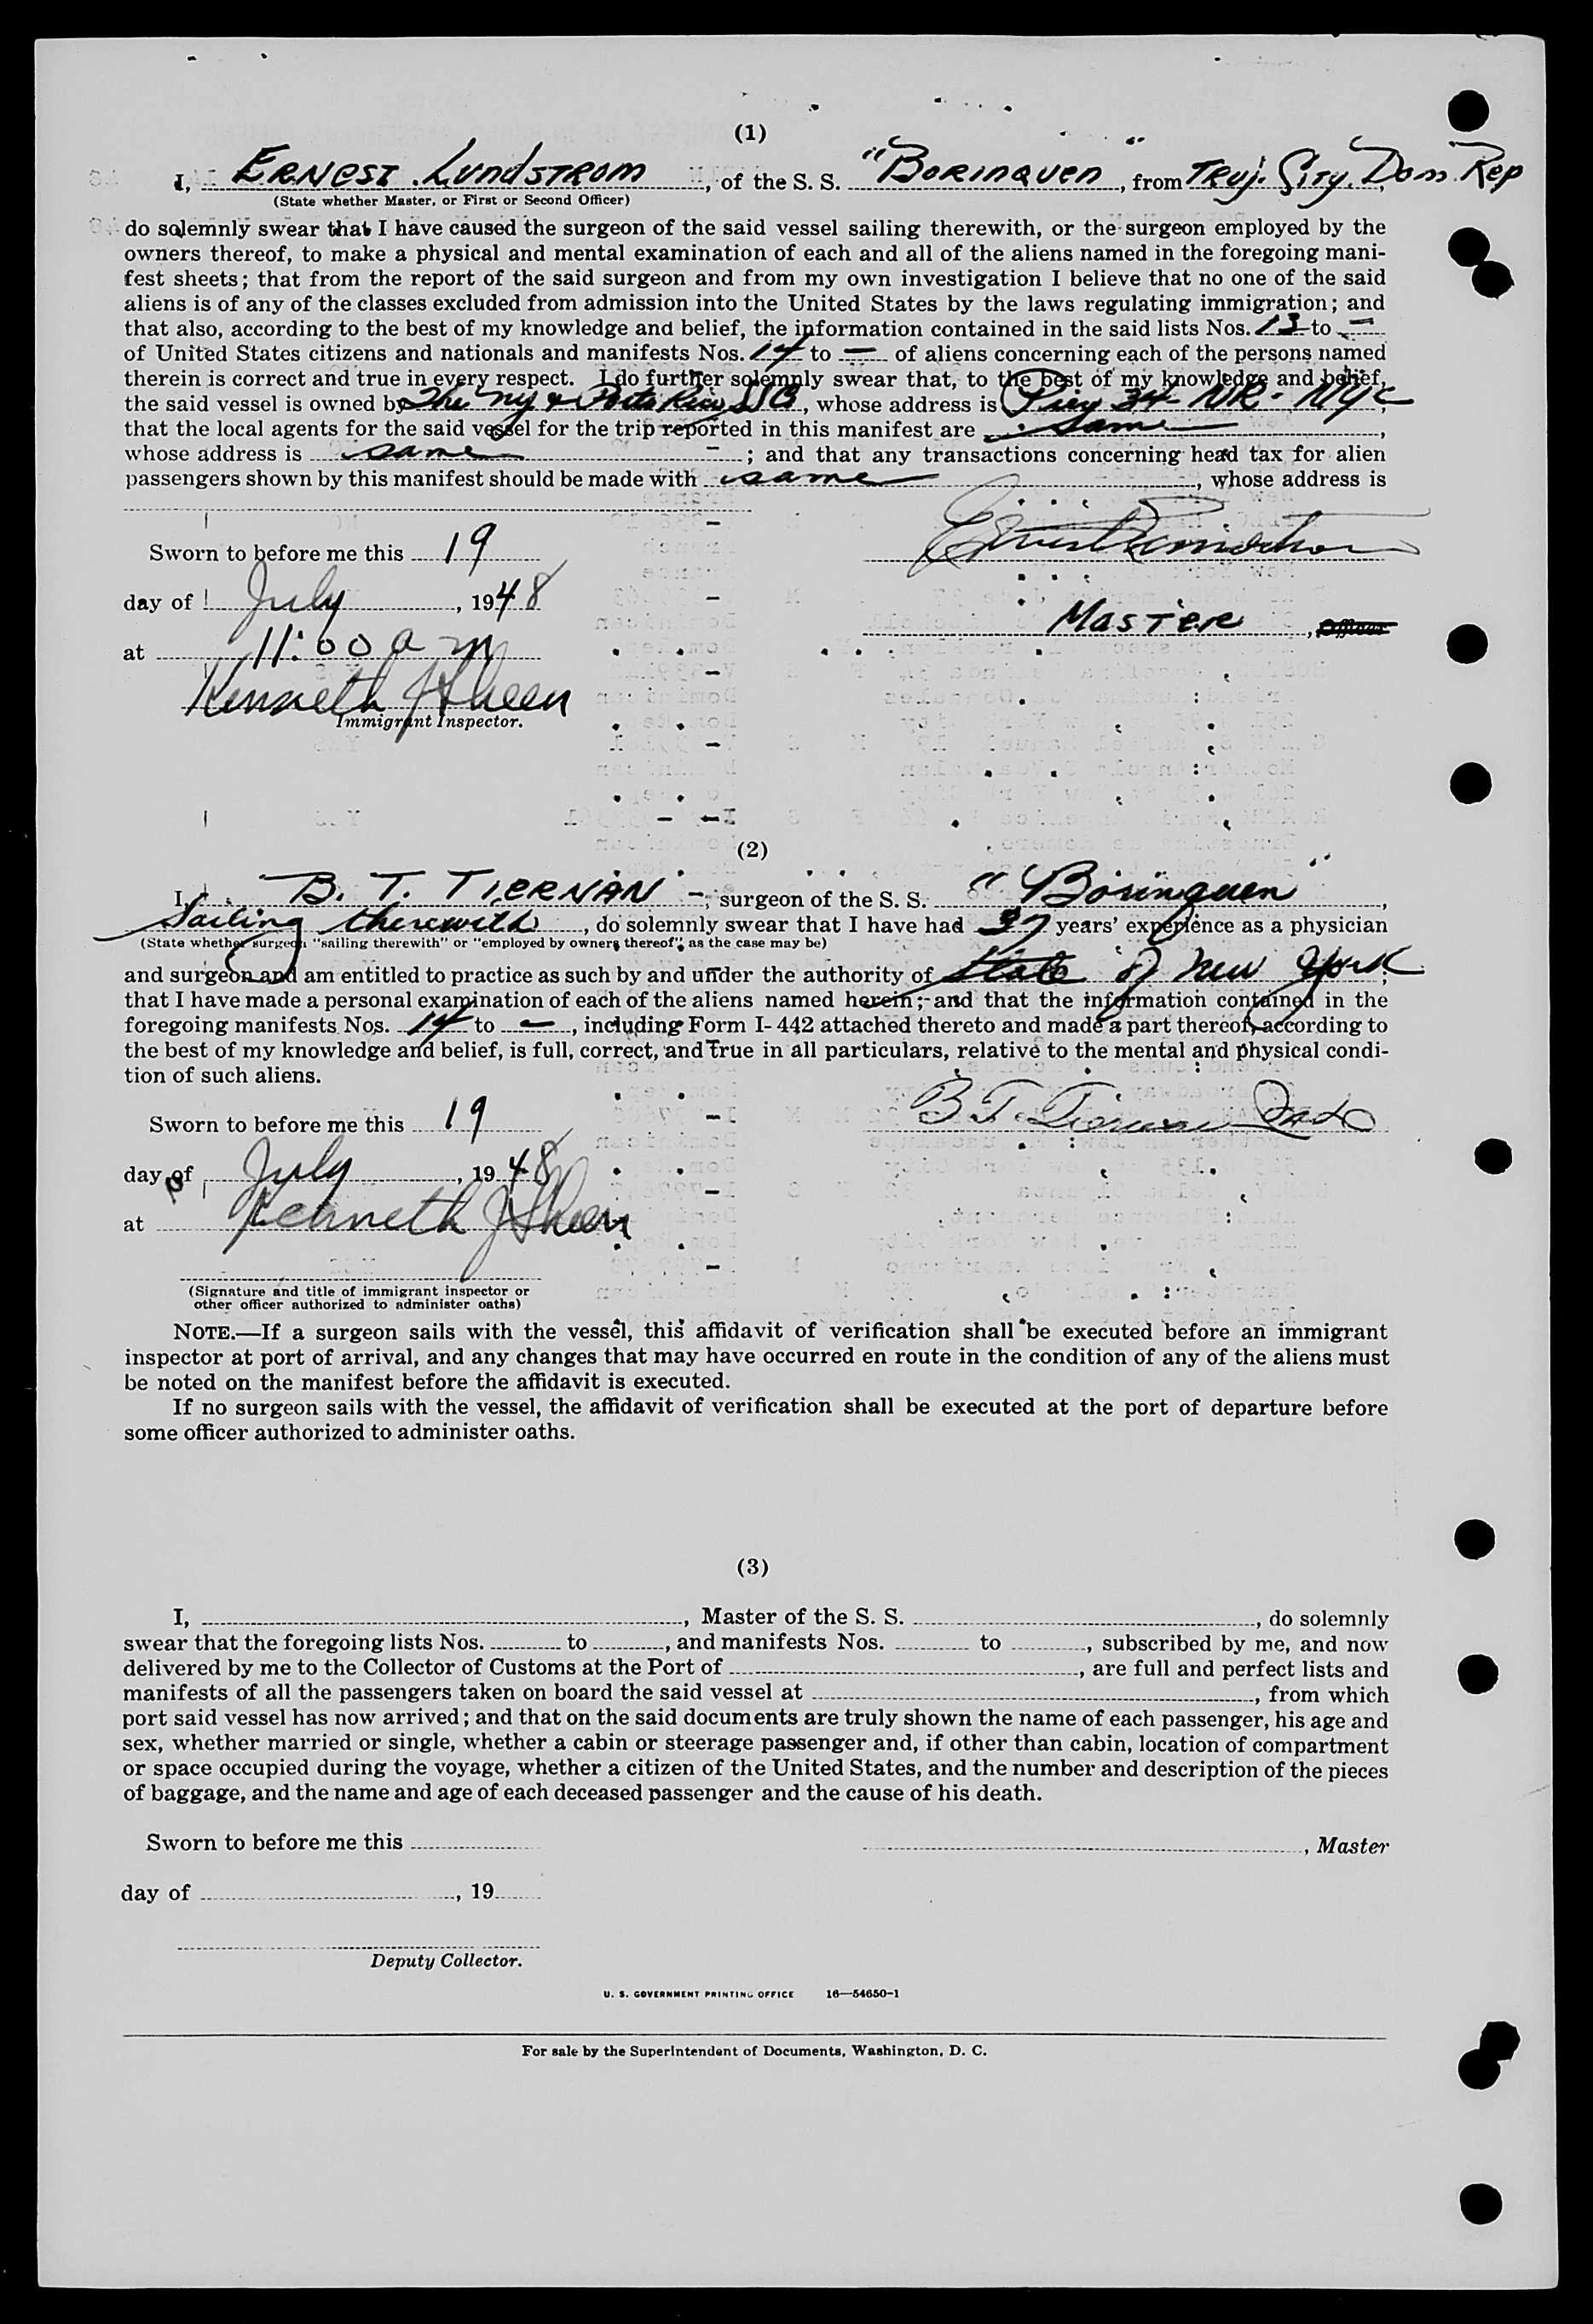 (1)
I, ERNEST LUNDSTROM, of the S. S. "BORINQUEN", from TRUJ. CITY. DOM REP
(State whether Master, or First or Second Officer)
do solemnly swear that I have caused the surgeon of the said vessel sailing therewith, or the surgeon employed by the
owners thereof, to make a physical and mental examination of each and all of the aliens named in the foregoing mani-
fest sheets; that from the report of the said surgeon and from my own investigation I believe that no one of the said
aliens is of any of the classes excluded from admission into the United States by the laws regulating immigration; and
that also, according to the best of my knowledge and belief, the information contained in the said lists Nos. 13 to —
of United States citizens and nationals and manifests Nos. 14 to — of aliens concerning each of the persons named
therein is correct and true in every respect. I do further solemnly swear that, to the best of my knowledge and belief,
the said vessel is owned by The NY & Porto Rico SS Co, whose address is Pier 34 NR - NYC,
that the local agents for the said vessel for the trip reported in this manifest are same,
whose address is same —; and that any transactions concerning head tax for alien
passengers shown by this manifest should be made with same, whose address is
Sworn to before me this 19
day of July, 1948
MASTER, Officer
at 11:00 a m
Kenneth J Sheen
Immigrant Inspector.
(2)
I, B. T. TIERNAN —, surgeon of the S. S. "Borinquen",
Sailing therewith, do solemnly swear that I have had 37 years' experience as a physician
(State whether surgeon "sailing therewith" or "employed by owners thereof", as the case may be)
and surgeon and am entitled to practice as such by and under the authority of State of New York,
that I have made a personal examination of each of the aliens named herein; and that the information contained in the
foregoing manifests Nos. 14 to —, including Form I-442 attached thereto and made a part thereof, according to
the best of my knowledge and belief, is full, correct, and true in all particulars, relative to the mental and physical condi-
tion of such aliens.
B T. Tiernan
Sworn to before me this 19
day of July, 1948
at Kenneth J Sheen
(Signature and title of immigrant inspector or
other officer authorized to administer oaths)
NOTE.—If a surgeon sails with the vessel, this affidavit of verification shall be executed before an immigrant
inspector at port of arrival, and any changes that may have occurred en route in the condition of any of the aliens must
be noted on the manifest before the affidavit is executed.
If no surgeon sails with the vessel, the affidavit of verification shall be executed at the port of departure before
some officer authorized to administer oaths.
(3)
I, , Master of the S. S. , do solemnly
swear that the foregoing lists Nos. to , and manifests Nos. to , subscribed by me, and now
delivered by me to the Collector of Customs at the Port of , are full and perfect lists and
manifests of all the passengers taken on board the said vessel at , from which
port said vessel has now arrived; and that on the said documents are truly shown the name of each passenger, his age and
sex, whether married or single, whether a cabin or steerage passenger and, if other than cabin, location of compartment
or space occupied during the voyage, whether a citizen of the United States, and the number and description of the pieces
of baggage, and the name and age of each deceased passenger and the cause of his death.
Sworn to before me this
, Master
day of , 19
Deputy Collector.
U. S. GOVERNMENT PRINTING OFFICE 16—54650-1
For sale by the Superintendent of Documents, Washington, D. C.